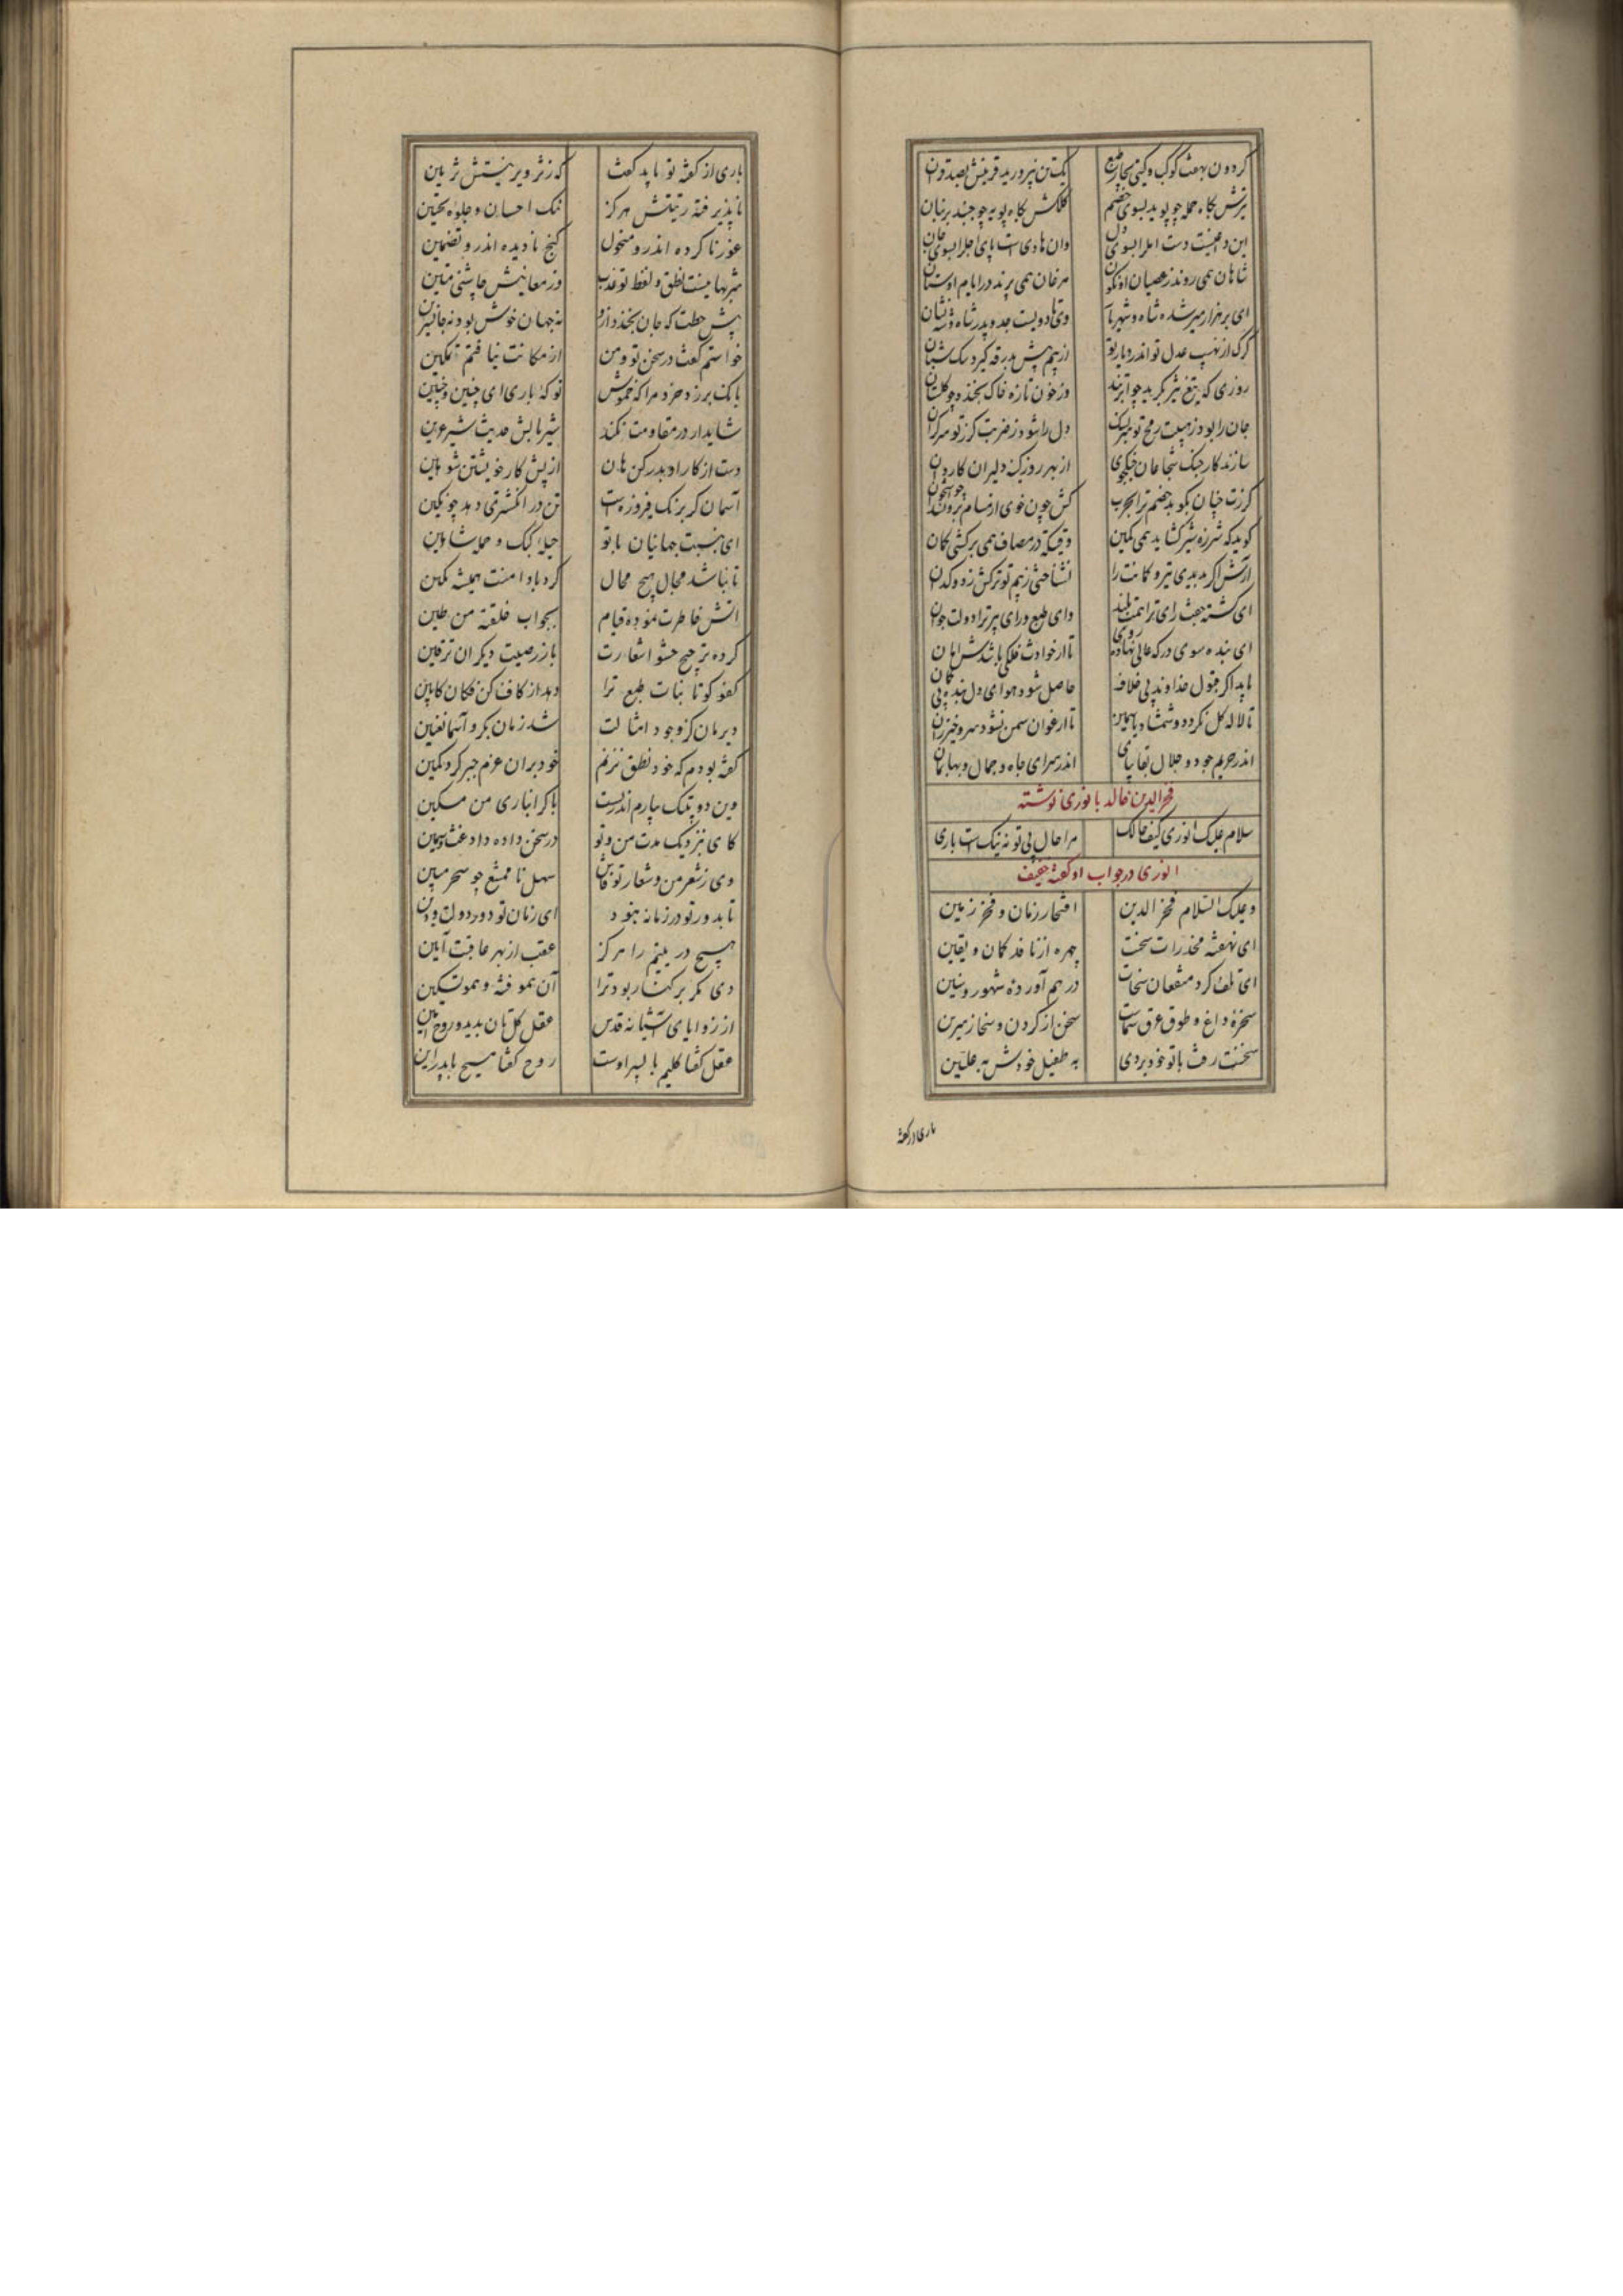 کردون بهفت کوکب و کیتی بچار طبع یک تن نپرورید قرینش بصد قران
تیرش بکاه حمله چو پوید بسوی خصم کلکش بکاه پویه چو جنبد بر بنان
این داعیست دست امل را بسوی دل وان هادی است پای اجل را بسوی جان
شاهان همی روند ز عصیان او نکون مرغان همی پرند در ایام او ستان
ای بر هزار میر شده شاه و شهریار وی هادویست جد و پدر شاه و نشان
کرک از نهیب عدل تو اندر دیار تو از بیم پیش بدرقه کیرد سک شبان
روزی که تیغ تیز بکرید چو ابر تند وز خون تازه خاک بخندد چو کلستان
جان را بود ز هیبت رمح تو سر سبک دل را شود ز ضربت کرز تو سر کران
سازند کار جنک شجاعان جنکجوی از بهر روز کینه دلیران کاردان
کرزت چنان بکوبد خصم ترا بحرب کش چون خوی از مسام برون
کوید که شرزه شیر کشاید همی کمین وقتیکه در مصاف همی برکشی کمان
آرش اکر بدیدی تیر و کمانت را نشناختی ز بیم تو ترکش ز دوکدان
ای کشته جفت رای ترا همت بلند وای طبع و رای پیر ترا دولت جوان
ای بنده سوی درکه عالی نهاده روی تا از حوادث فلکی باشدش امان
باید اکر قبول خداوند بی خلاف حاصل شود هوای دل بنده بی کمان
تا لاله کل نکردد و شمشاد یاسمین تا ارغوان سمن نشود سرو خیزران
اندر حریم جود و جلال بقا بپای اندر سرای جاه و جمال و بها بمان
فخرالدین خالد بانوری نوشته
سلام علیک انوری کیف حالک مرا حال بی تو نه نیکست باری
انوری در جواب او کفته خفیف
و علیک السلام فخر الدین افتخار زمان و فخر زمین
ای نهفته مخدرات سخنت چهره از ناقد کمان و یقین
ای تلف کرد منفعان سخات در هم آورده شهور و سنین
سخره داغ و طوق عرق سمات سخن از کردن و سخا ز سرین
سخنت رفت با تو خود بردی به طفیل خودش به علیین
باری از کفته
باری از کفته تو باید کفت که ز نثر و بر نیتش ثریین
ناپذیرفته رتبتش هرکز ننک احسان و جلوه تحسین
عذر ناکرده اندرو منحول کنج نادیده اندرو تضمین
شربهاییست نطق و لفظ تو عذب وز معانیش چاشنی متین
پیش خطت که جان بخندد ازو نه جهان خوش بود نه جانبرین
خواستم کفت در سخن تو و من از مکانت نیافتم تمکین
بانک بر زد خرد مرا که خموش تو که باری ای چنین و چنین
شاید ار در مقاومت نکند شیر بالش حدیث شیر عرین
دست از کار او بدر کن هان از پس کار خویشتن شو هین
آسمان کر برنک فیروزه ست تن در انکشتری دهد چو نکین
ای بنسبت جهانیان با تو حیله کبک و حمله شاهین
تا نباشد مجال هیچ محال کرد باد امنت همیشه مکین
آتش خاطرت نموده قیام بجواب خلقته من طین
کرده ترجیح حشو اشعارت باز رصیت دیکران ترقین
کفو کو تا نبات طبع ترا دهد از کاف کن فکان کابین
دیرمان کز وجود امثالت شد زمان بکر و آسمان عنین
کفته بودم که خود نطق نزنم خود بران عزم جبر کرد کمین
وین دو بتنک چارم اندر بست با کرانباری من مسکین
کای بنزدیک مدت من و تو در سخن داده داد غث و سمین
وی ز شعر من و شعار تو فاش سهل نا ممتنع چو سحر مبین
تا بدور تو در زمانه نبود ای زمان تو دور دولت و دین
هیچ در یتیم را هرکز عقب از بهر عاقبت آیین
دی مکر بر کنار بود ترا آن نمو فته و نمو تمکین
از زوایای آشیانه قدس عقل کل تان بدید و روح امین
عقل کفتا کلیم با پسر اوست روح کفتا مسیح با پدر این